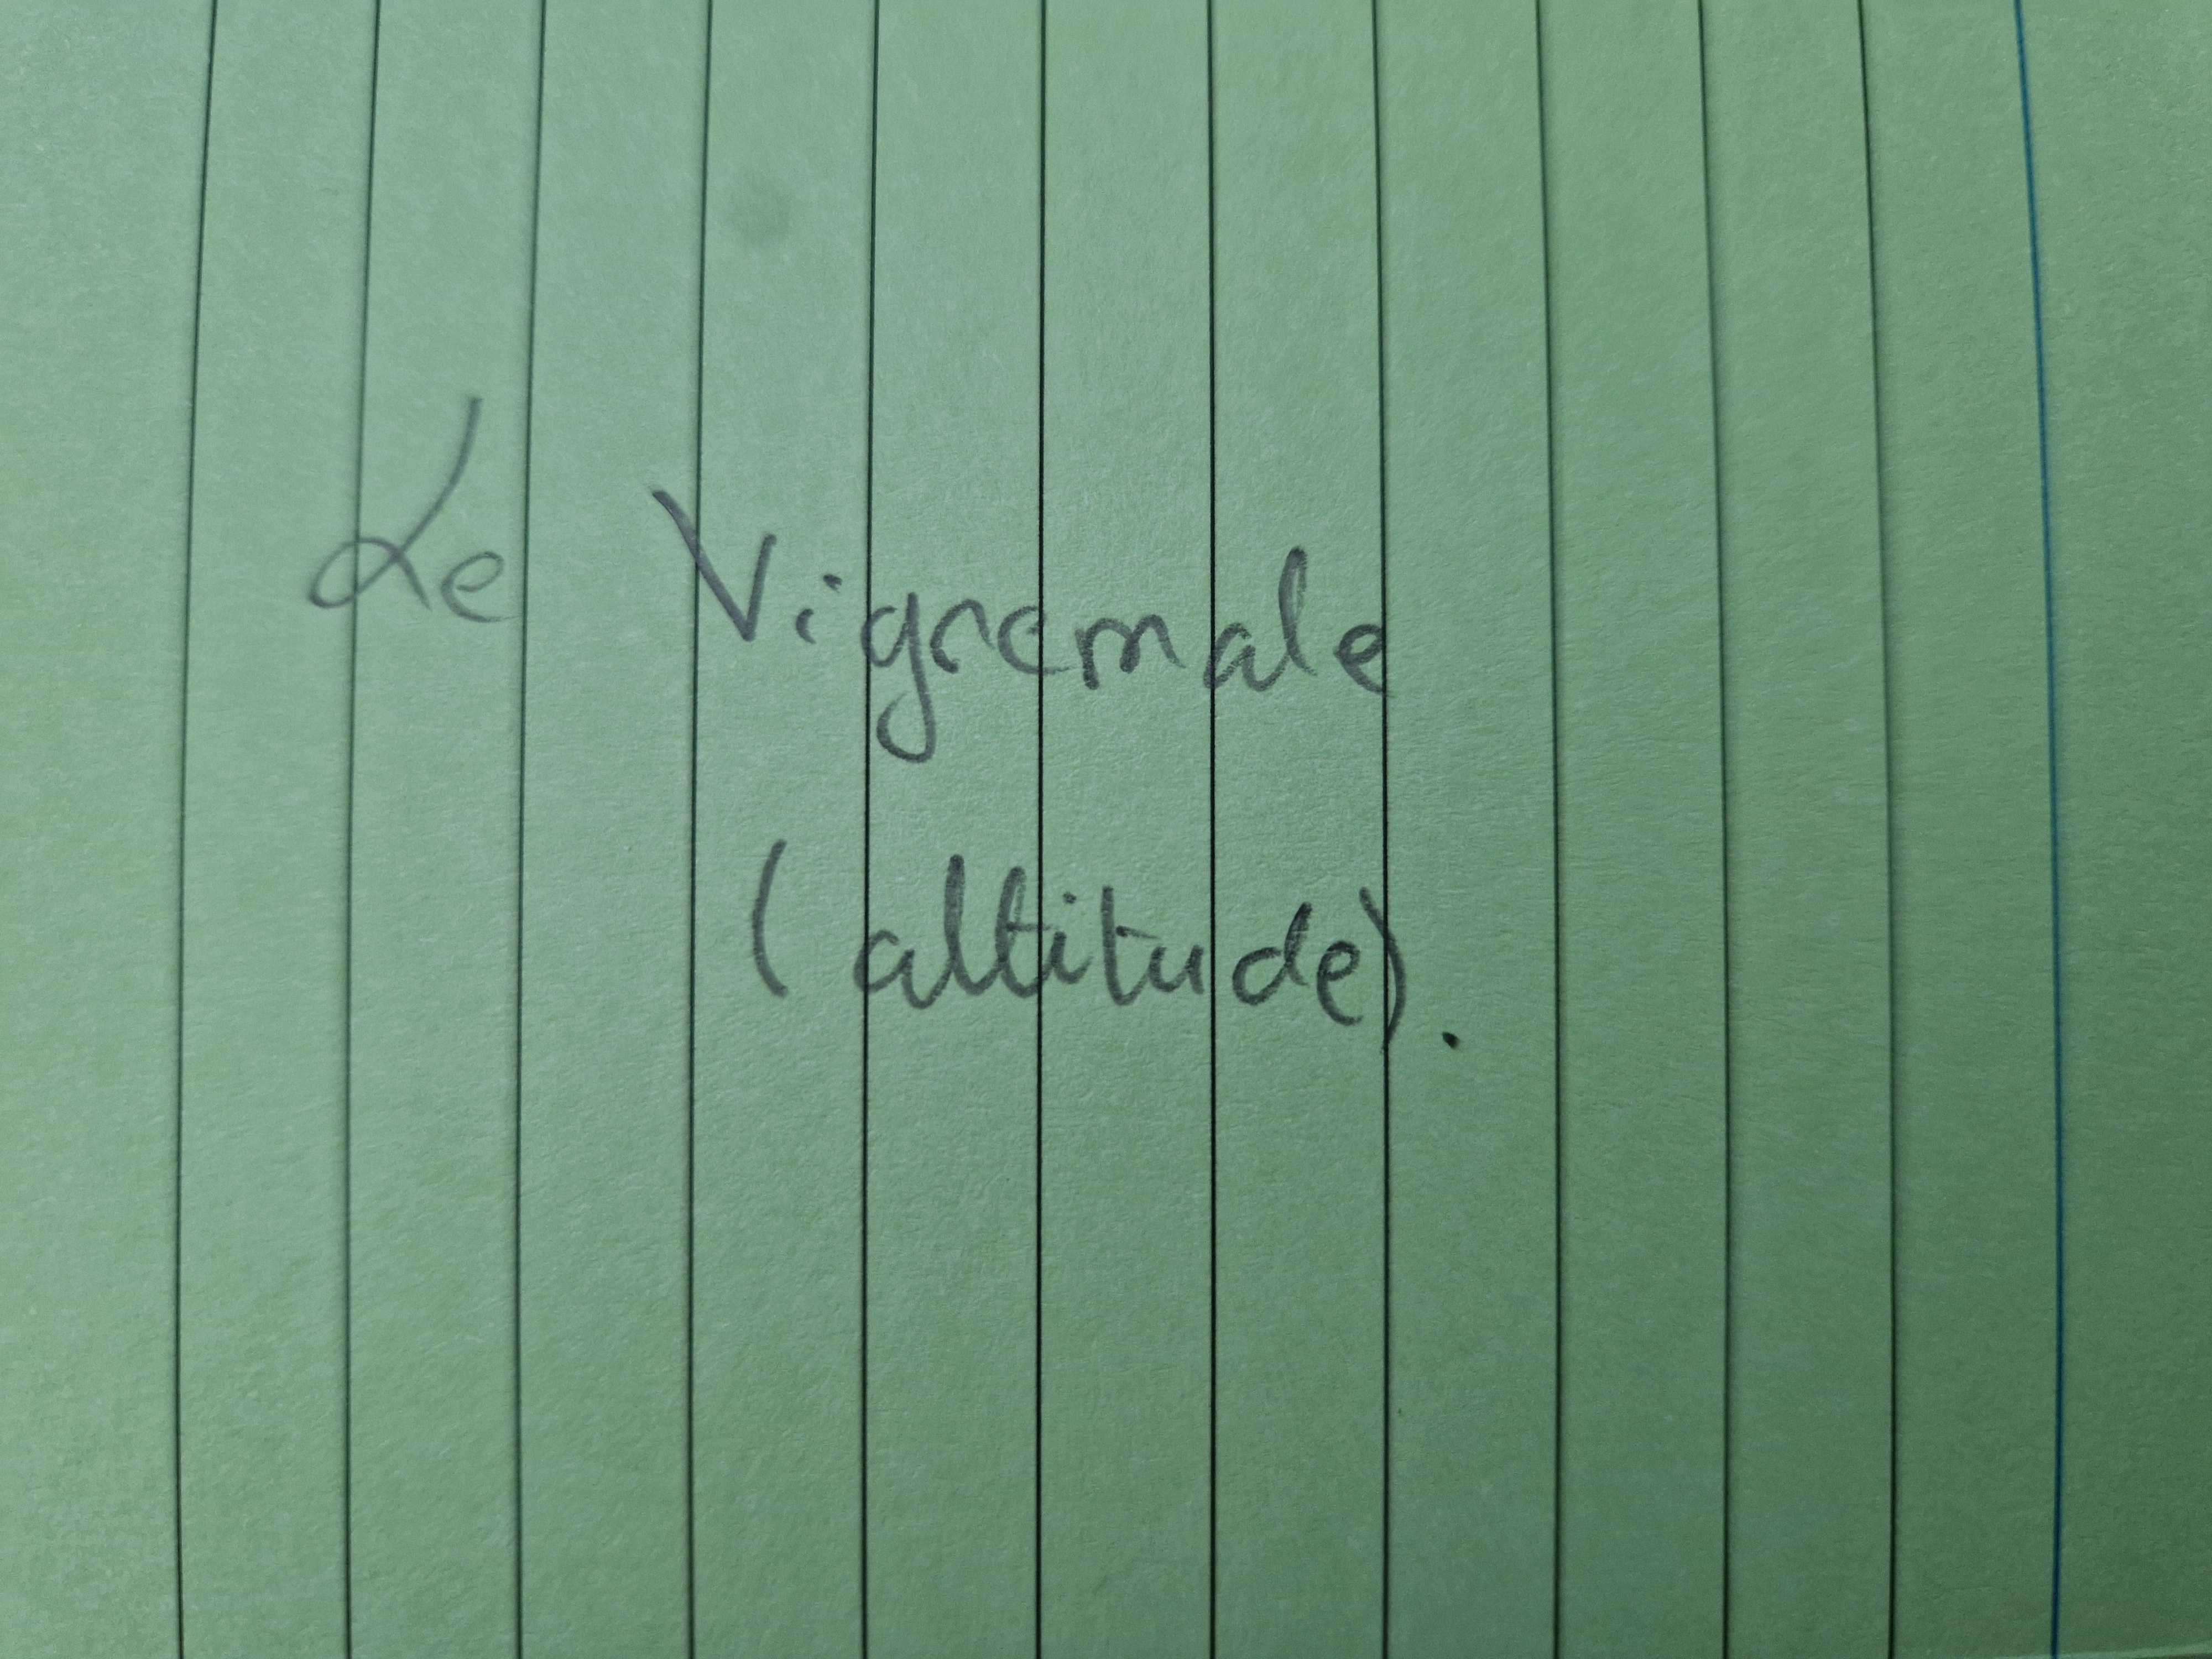 Le Vigremale
(altitude).